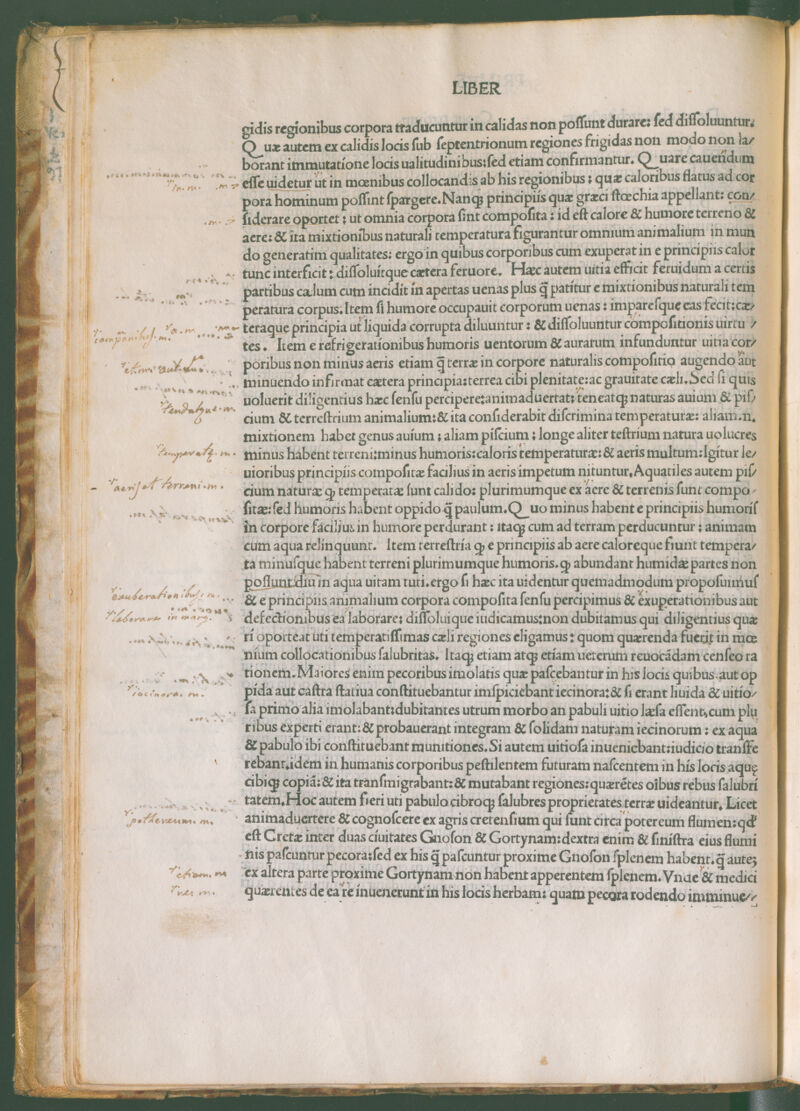 LIBER
gidis regionibus corpora traducuntur in calidas non poſſunt durare: ſed diſſoluuntur:
Quæ autem ex calidis locis ſub ſeptentrionum regiones frigidas non modo non la/
borant immutatione locis ualitudinibus:ſed etiam confirmantur. Quare cauendum
eſſe uidetur ut in mœnibus collocandis ab his regionibus: quæ caloribus flatus ad cor
pora hominum poſſint ſpargere.Nanq; principiis quæ græci ſtœchia appellant: con/
ſiderare oportet: ut omnia corpora ſint compoſita: id eſt calore & humore terreno &
aere: & ita mixtionibus naturali temperatura figurantur omnium animalium in mun
do generatim qualitates: ergo in quibus corporibus cum exuperat in e principiis calor
tunc interficit: diſſoluitque cætera feruore. Hæc autem uitia efficit feruidum a certis
partibus cælum cum incidit in apertas uenas plus q̄ patitur e mixtionibus naturali tem
peratura corpus.Item ſi humore occupauit corporum uenas: impareſque eas fecit:cæ/
teraque principia ut liquida corrupta diluuntur: & diſſoluuntur compoſitionis uirtu /
tes. Item e refrigerationibus humoris uentorum & aurarum infunduntur uitia cor/
poribus non minus aeris etiam q̄ terræ in corpore naturalis compoſitio augendo aut
minuendo infirmat cætera principia:terrea cibi plenitate:ac grauitate cæli.Sed ſi quis
uoluerit diligentius hæc ſenſu percipere:animaduertat: teneatq; naturas auium & piſ/
cium & terreſtrium animalium:& ita conſiderabit diſcrimina temperaturæ: aliam.n.
mixtionem habet genus auium: aliam piſcium: longe aliter teſtrium natura uolucres
minus habent terreni:minus humoris:caloris temperaturæ: & aeris multum:Igitur le/
uioribus principiis compoſitæ facilius in aeris impetum nituntur.Aquatiles autem piſ/
cium naturæ q; temperatæ ſunt calido: plurimumque ex aere & terrenis ſunt compo
ſitæ: ſed humoris habent oppido q̄ paulum.Quo minus habent e principiis humoriſ
in corpore facilius in humore perdurant: itaq; cum ad terram perducuntur: animam
cum aqua relinquunt. Item terreſtria q; e principiis ab aere caloreque ſiunt tempera/
ta minuſque habent terreni plurimumque humoris.q; abundant humidæ partes non
poſſunt diu in aqua uitam tuti.ergo ſi hæc ita uidentur quemadmodum propoſuimuſ
& e principiis animalium corpora compoſita ſenſu percipimus & exuperationibus aut
defectionibus ea laborare: diſſoluique iudicamus:non dubitamus qui diligentius quæ
ri oporteat uti temperatiſſimas cæli regiones eligamus: quom quærenda fuerit in mœ
nium collocationibus ſalubritas. Itaq; etiam atq; etiam ueterum reuocādam cenſeo ra
tionem.Maiores enim pecoribus imolatis quæ paſcebantur in his locis quibus aut op
pida aut caſtra ſtatiua conſtituebantur imſpiciebant iecinora:& ſi erant liuida & uitio/
ſa primo alia imolabant:dubitantes utrum morbo an pabuli uitio læſa eſſent,cum plu
ribus experti erant: & probauerant integram & ſolidam naturam iecinorum: ex aqua
& pabulo ibi conſtituebant munitiones.Si autem uitioſa inueniebant:iudicio tranſſe
rebant,idem in humanis corporibus peſtilentem futuram naſcentem in his locis aquę
cibiq; copiā: & ita tranſmigrabant:& mutabant regiones:quærētes oībus rebus ſalubri
tatem.Hoc autem fieri uti pabulo cibroq; ſalubres proprietates terræ uideantur. Licet
animaduertere & cognoſcere ex agris cretenſium qui ſunt circa potereum flumen:qđ
eſt Cretæ inter duas ciuitates Gnoſon & Gortynam:dextra enim & ſiniſtra eius flumi
nis paſcuntur pecora:ſed ex his q̄ paſcuntur proxime Gnoſon ſplenem habent.q̄ autēȝ
ex altera parte proxime Gortynam non habent apperentem ſplenem.Vnde & medici
quærentes de ea re inuenerunt in his locis herbam: quam pecora rodendo imminue/
temperatq. m.
aeris et terreni. m.
exuberationibus. m.
laborare in marg.
iocinora. m.
pothereum. m.
etiam. m